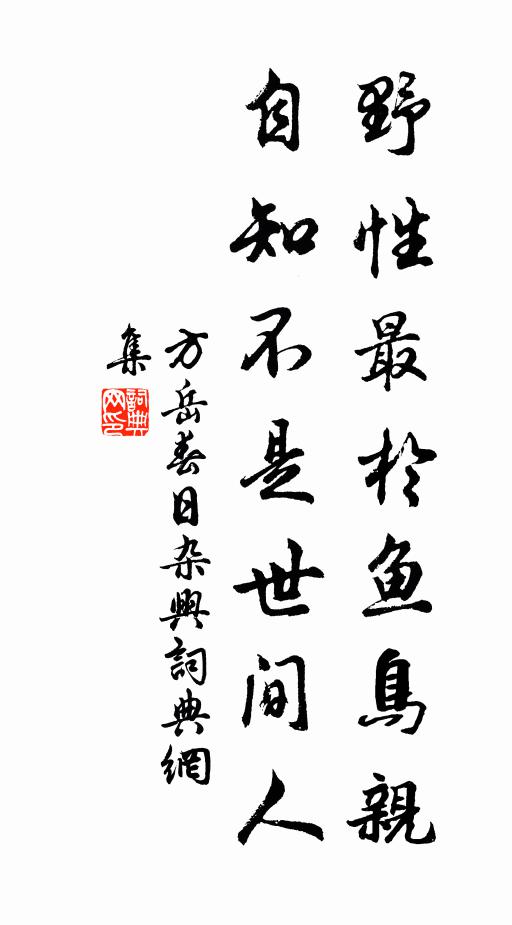 野性最於鱼鳥親
自知不是世间人
方岳春日杂興詞典網
集
詞典网印